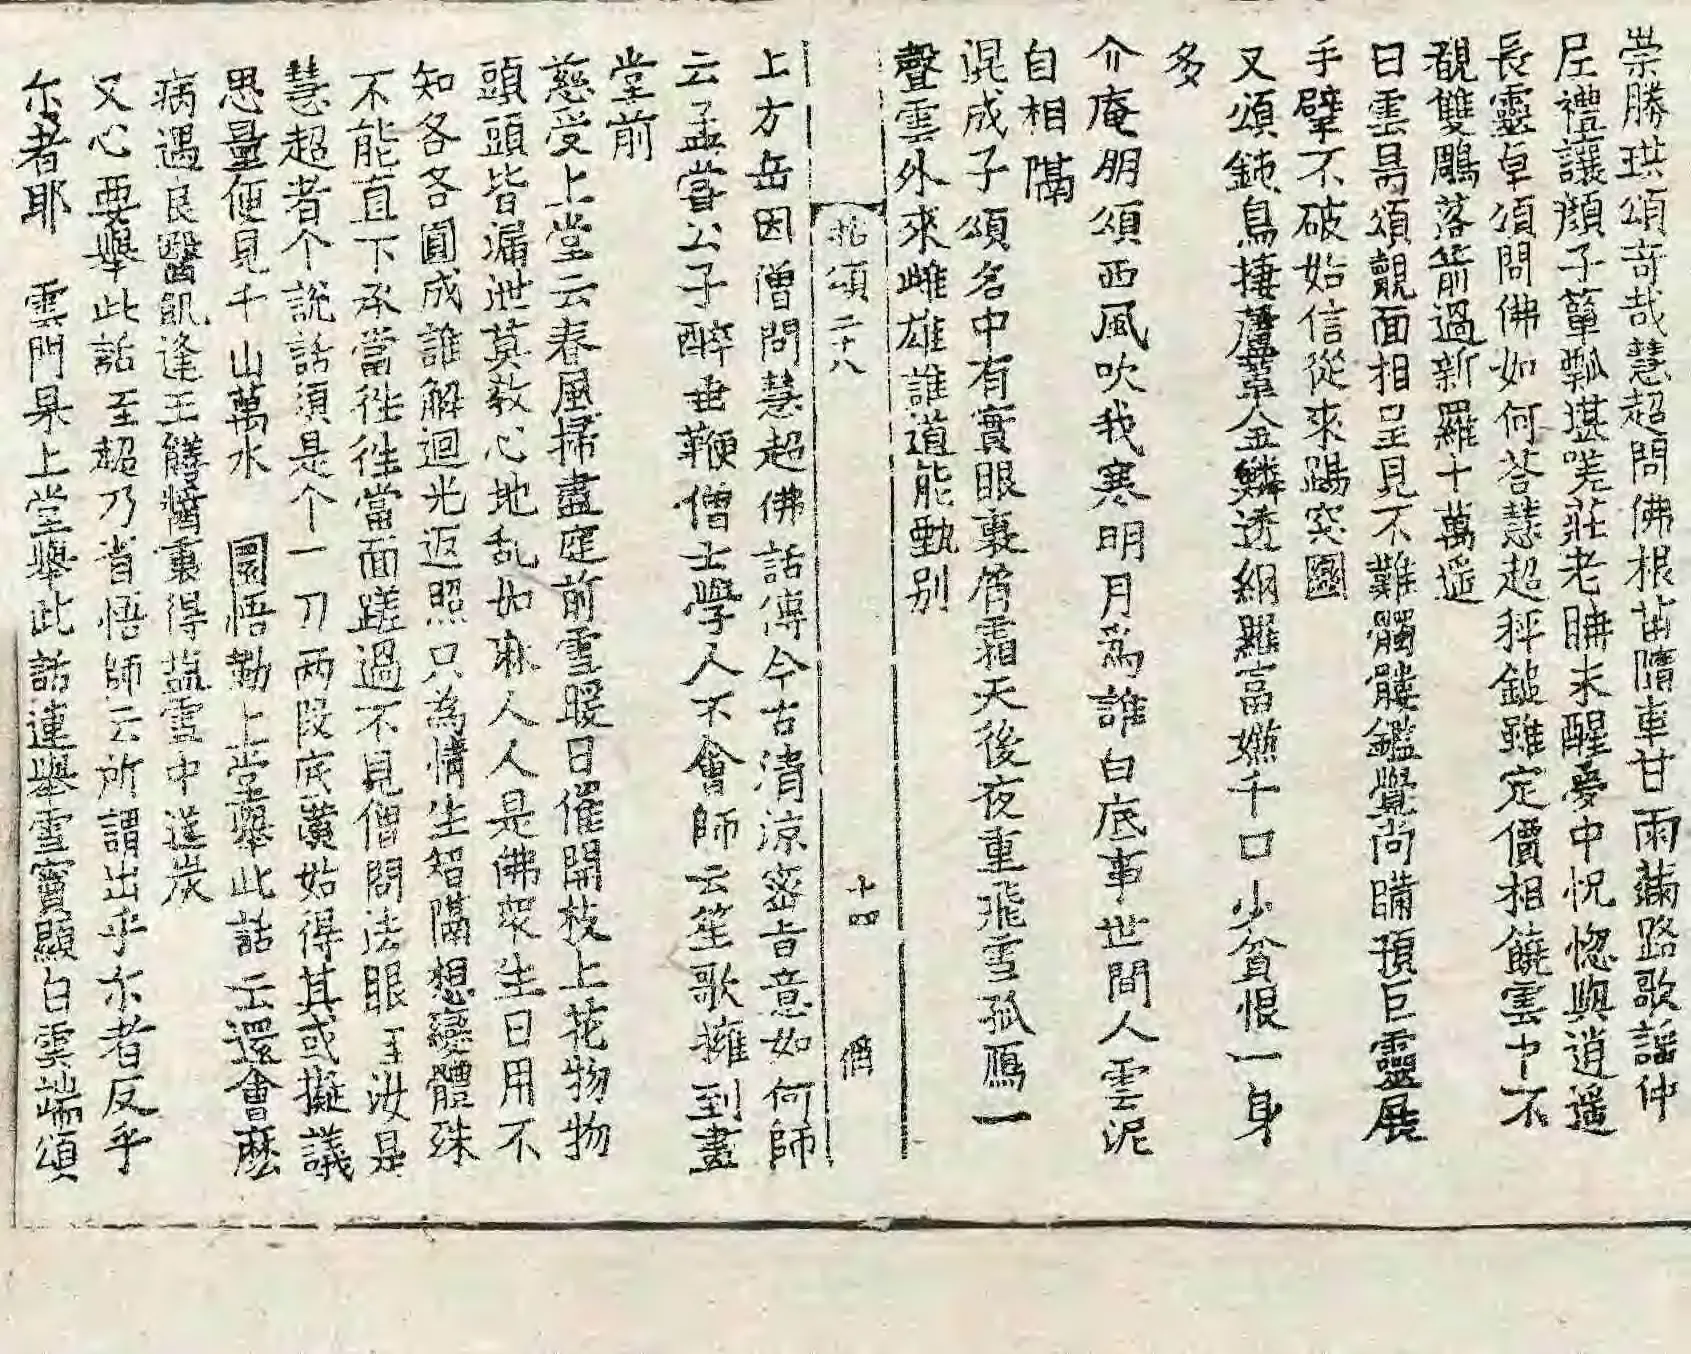 崇勝珙頌奇哉慧超問佛根苗隋車甘雨滿路歌謡仲
尼禮讓顏子簞瓢堪笑莊老腆未醒夢中怳惚與逍遥
長靈卓頌問佛如何荅慧超秤鎚雖定價相饒雲中不
覩雙鵰落箭過新羅十萬遥
白雲昺頌覿面相呈見不難髑髏鑑覺尚瞞頇巨靈展
手擘不破始信從來踢突圝
又頌鈍鳥捿蘆葦金鱗透網羅富嫌千口少貧恨一身
多
介庵朋頌西風吹我寒明月爲誰白底事世間人雲泥
自相隔
混成子頌名中有實眼裏有霜天後夜重飛雪孤鴈一
聲雲外來雌雄誰道能甄别
拈頌二十八 十四
上方岳因僧問慧超佛話傳今古清涼密旨意如何師
云孟甞公子醉垂鞭僧士學人不會師云笙歌擁到畫
堂前
慈受上堂云春風掃盡庭前雪暖日催開枝上花物物
頭頭皆漏泄莫教心地乱如麻人人是佛衆生日用不
知各各圓成誰解迴光返照只為情生智隔想變體殊
不能直下承當徃徃當面蹉過不見僧問法眼至汝是
慧超者个說話須是个一刀两段底漢始得其或擬議
思量便見千山萬水 圜悟勤上堂舉此話云還會麽
病遇良醫飢逢王饍醬裏得塩雪中送炭
又心要舉此話至超乃省悟師云所謂出乎尒者反乎
尒者耶 雲門杲上堂舉此話連舉雪竇顯白雲端頌